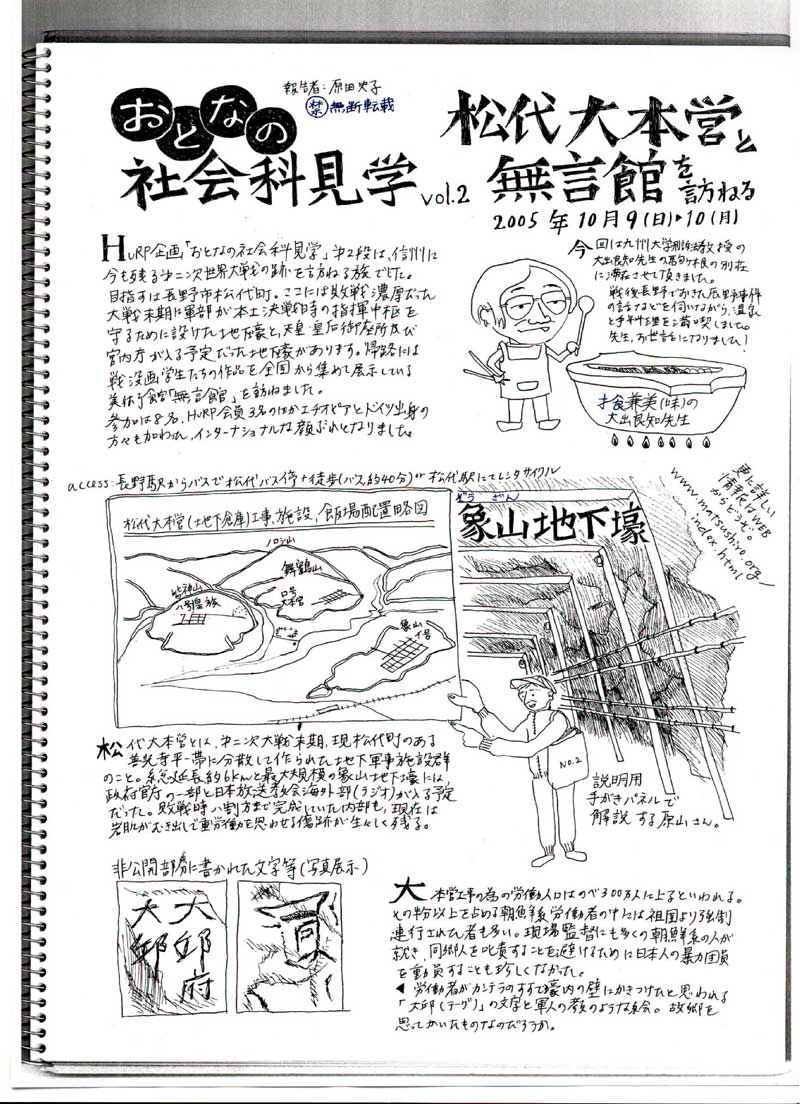 おとなの
社会科見学 vol.2
報告者:原田
禁 無断転載
松代大本営と
無言館を訪ねる
2005年10月9(日)・10(月)
HuRP企画「おとなの社会科見学」第2段は、信州に
今も残る第二次世界大戦の跡を訪ねる旅でした。
目指すは長野市松代町。ここには敗戦濃厚だった
大戦末期に軍部が本土決戦時の指揮中枢を
守るために設けた地下壕と、天皇・皇后御座所及び
宮内庁が入る予定だった地下壕があります。帰路には
戦没画学生たちの作品を全国から集めて展示している
美術館「無言館」を訪ねました。
参加は8名、HuRP会員3名のほかエチオピアとドイツ出身の
方々も加わった、インターナショナルな顔ぶれとなりました。
今回は九州大学刑訴法教授の
大出良知先生の駒ヶ根の別荘
に滞在させて頂きました。
戦後長野でおきた辰野事件
の話などを伺いながら、温泉
と手料理を満喫しました。
先生、お世話になりました!
才食兼美(味)の
大出良知先生
access:長野駅からバスで松代バス停+徒歩(バス約40分)か 松代駅にてレンタサイクル
更に詳しい
情報はWEB
からどうぞ。
www.matsushiro.org
index.html
松代大本営(地下倉庫)工事、施設、飯場配置略図
ノロシ山
舞鶴山
ロ号
大本営
皆神山
ハ号皇族
象山
イ号
ぞうざん
象山地下壕
No.2
説明用
手がきパネルで
解説する原山さん。
松代大本営とは、第二次大戦末期、現松代町のある
善光寺平一帯に分散して作られた地下軍事施設群
のこと。総延長約6kmと最大規模の象山地下壕には
政府官庁の一部と日本放送協会海外部(ラジオ)が入る予定
だった。敗戦時八割方まで完成していた内部も、現在は
岩肌がむき出しで重労働を思わせる傷跡が生々しく残る。
非公開部分に書かれた文字等(写真展示)
大邱府
大邱
大本営工事の為の労働人口はのべ300万人に上るといわれる。
その半分以上を占める朝鮮系労働者の中には祖国より強制
連行された者も多い。現場監督にも多くの朝鮮系の人が
就き、同郷人を叱責することを避けるために日本人の暴力団員
を動員することも珍しくなかった。
◀ 労働者がカンテラのすすで壕内の壁にかきつけたと思われる
「大邱(テーグ)」の文字と軍人の顔のような絵。故郷を
思ってかいたものなのだろうか。